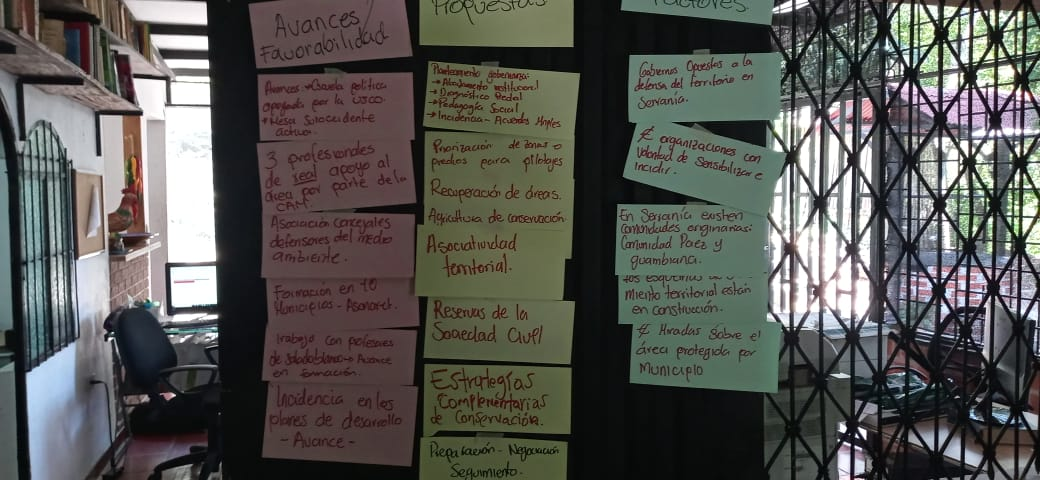 Avances/
Favorabilidad
Avances → Escuela política
apoyada por la USCO.
* Mesa Suroccidente
activa.
3 profesionales
de real apoyo al
área por parte de la
CAM.
Asociación concejales
defensores del medio
ambiente.
Formación en 10
Municipios - Asonarct.
Trabajo con profesores
de Saladoblanco → Avance
en formación.
Incidencia en los
planes de desarrollo
- Avance -
Propuestas
Planteamiento gobernanza:
→ Alindamiento institucional
→ Diagnóstico Predial
→ Pedagogía Social
→ Incidencia - Acuerdos Mples
Priorización de zonas o
predios para pilotajes
Recuperación de áreas.
Agricultura de conservación
Asociatividad
territorial.
Reservas de la
Sociedad Civil
Estrategias
Complementarias
de Conservación.
Preparación - Negociación
Seguimiento.
Factores.
Gobiernos opuestos a la
defensa del territorio en
Serranía.
organizaciones con
Voluntad de Sensibilizar e
incidir.
En Serranía existen
comunidades originarias:
Comunidad Paez y
guambiana.
los esquemas de
miento territorial están
en construcción.
Miradas sobre el
área protegida por
Municipio